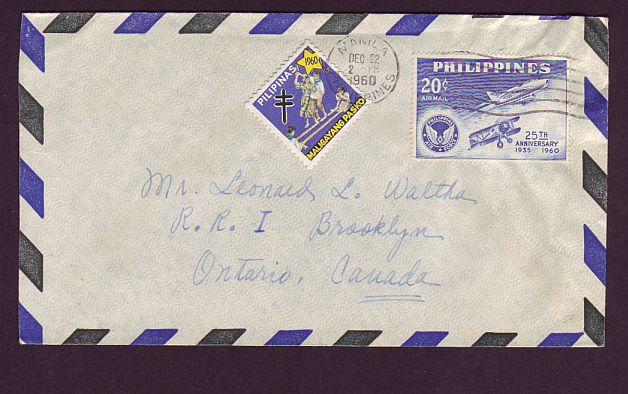 PILIPINAS
1960
MALIGAYANG PASKO
MANILA
DEC 22
2 - PM
1960
PHILIPPINES
20¢
AIR MAIL
PHILIPPINE
AIR FORCE
25TH
ANNIVERSARY
1935 1960
Mr. Leonard L. Waltha
R. R. I Brooklyn
Ontario, Canada